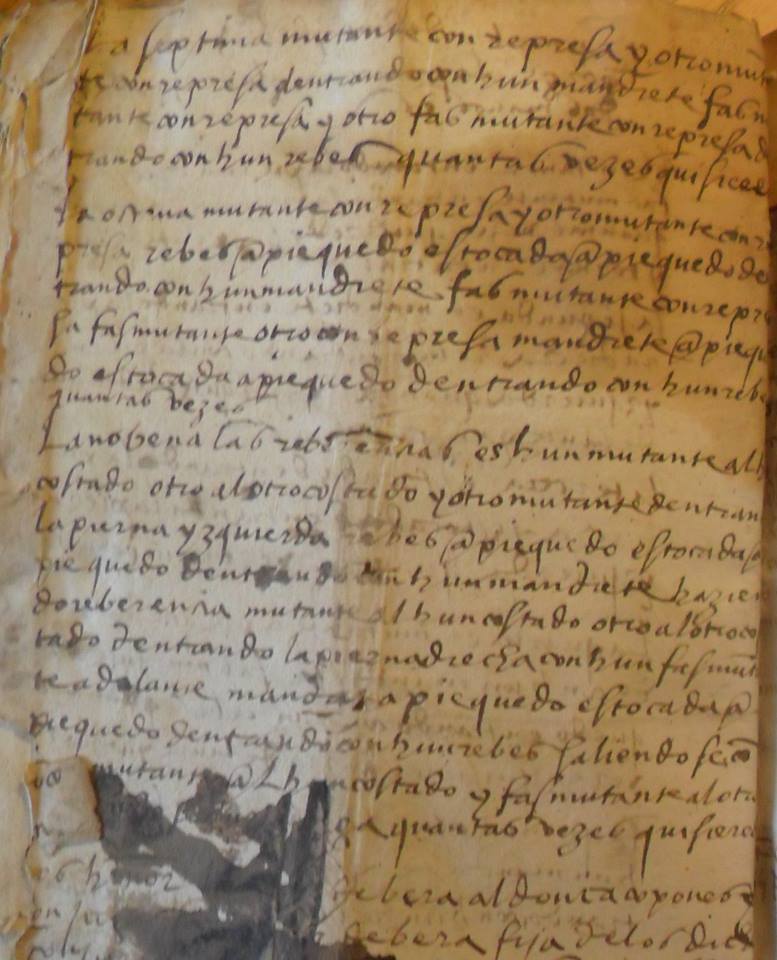 La septima mutante con represa y otro mutan
te con represa dentrando con hun mandrete fas m
tante con represa y otro fas mutante con represa d
trando con hun rebes quantas vezes quisiere
La octava mutante con represa y otro mutante con r
presa rebes a pie quedo estocada a pie quedo de
trando con hun mandrete fas mutante con repre
sa fas mutante otro con represa mandrete a pie que
do estocada a pie quedo dentrando con hun rebe
quantas vezes
La novena las reberencias es hun mutante al h
costado otro al otro costado y otro mutante dentran
la pierna yzquierda rebes a pie quedo estocada a
pie quedo dentrando con hun mandrete hazien
do reberencia mutante al hun costado otro al otro co
tado dentrando la pierna drecha con hun fas muta
te adelante a pie quedo estocada a
pie quedo dentrando con hun rebes saliendo se co
mutante al hun costado y fas mutante al otro
quantas vezes quisiere
es honor debera al
debera fija de los dich